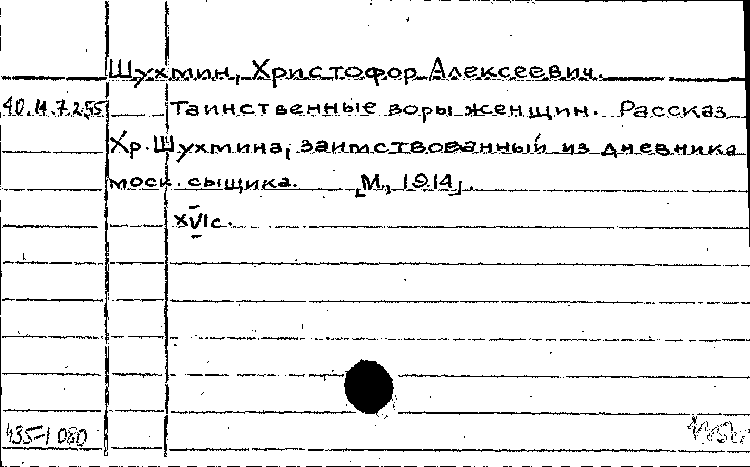 Шухмин, Христофор Алексеевич.
40.14.7.255 Таинственные воры женщин. Рассказ
Хр. Шухмина, заимствованный из дневника
моск. сыщика. [М., 1914].
XVIс.
435-1080